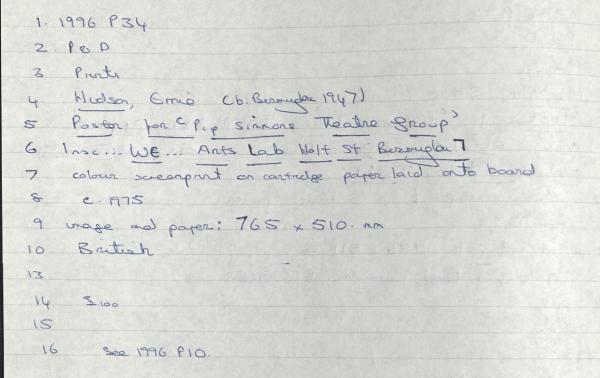 1. 1996 P34
2 P & D
3 Prints
4 Hudson, Ernie (b. 1947)
5 Poster for 'Pip Simmons Theatre Group'
6 Insc... WE... Arts Lab Holt St
7 colour screenprint on cartridge paper laid onto board
8 c. 1975
9 image and paper: 765 x 510. mm
10 British
13
14 £100
15
16 See 1996 P10.